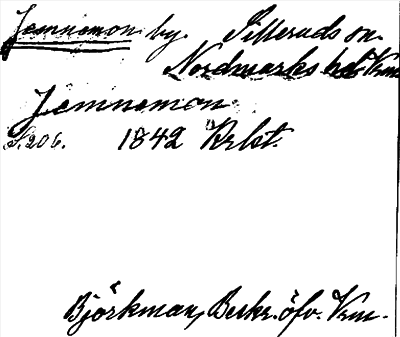 Jemnemon by. Silleruds sn.
Nordmarks hd. Vrm
Jemnemon
S. 206. 1842 Krbst.
Björkman, Beskr. öfv. Vrm.